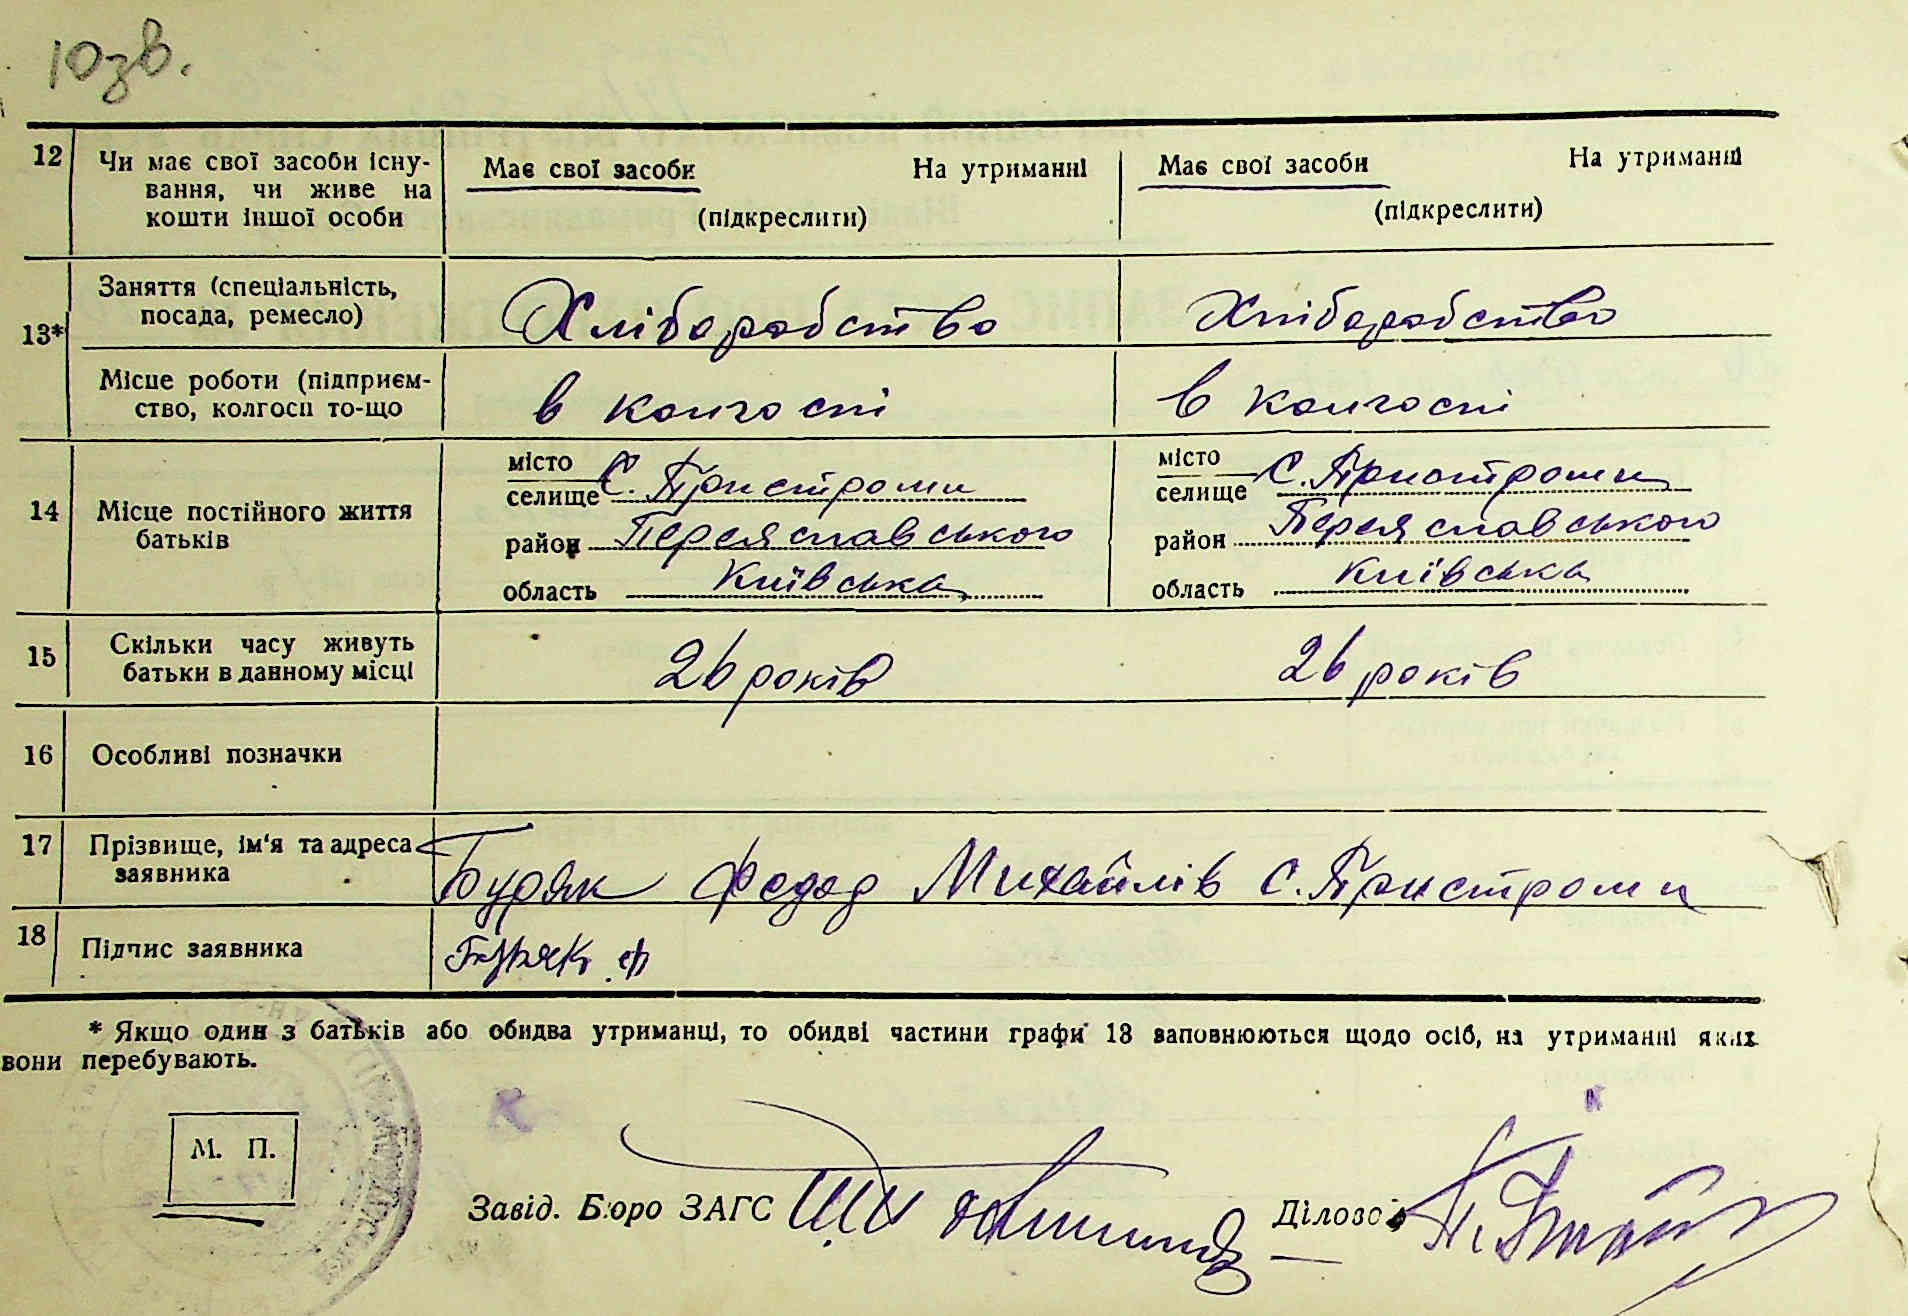 10зв.
12 Чи має свої засоби існу-
вання, чи живе на
кошти іншої особи
Має свої засоби На утриманні
(підкреслити)
Має свої засоби На утриманні
(підкреслити)
13* Заняття (спеціальність,
посада, ремесло)
Хліборобство
Хліборобство
Місце роботи (підприєм-
ство, колгосп то-що
в колгоспі
в колгоспі
14 Місце постійного життя
батьків
місто
селище С. Пристроми
район Переяславського
область Київська
місто
селище С. Пристроми
район Переяславського
область Київська
15 Скільки часу живуть
батьки в данному місці
26 років
26 років
16 Особливі позначки
17 Прізвище, ім'я та адреса
заявника
Буряк Федор Михайлів с. Пристроми
18 Підпис заявника
Буряк Ф
* Якщо один з батьків або обидва утриманці, то обидві частини графи 13 заповнюються щодо осіб, на утриманні яких
вони перебувають.
М. П.
Завід. Бюро ЗАГС
Діловод